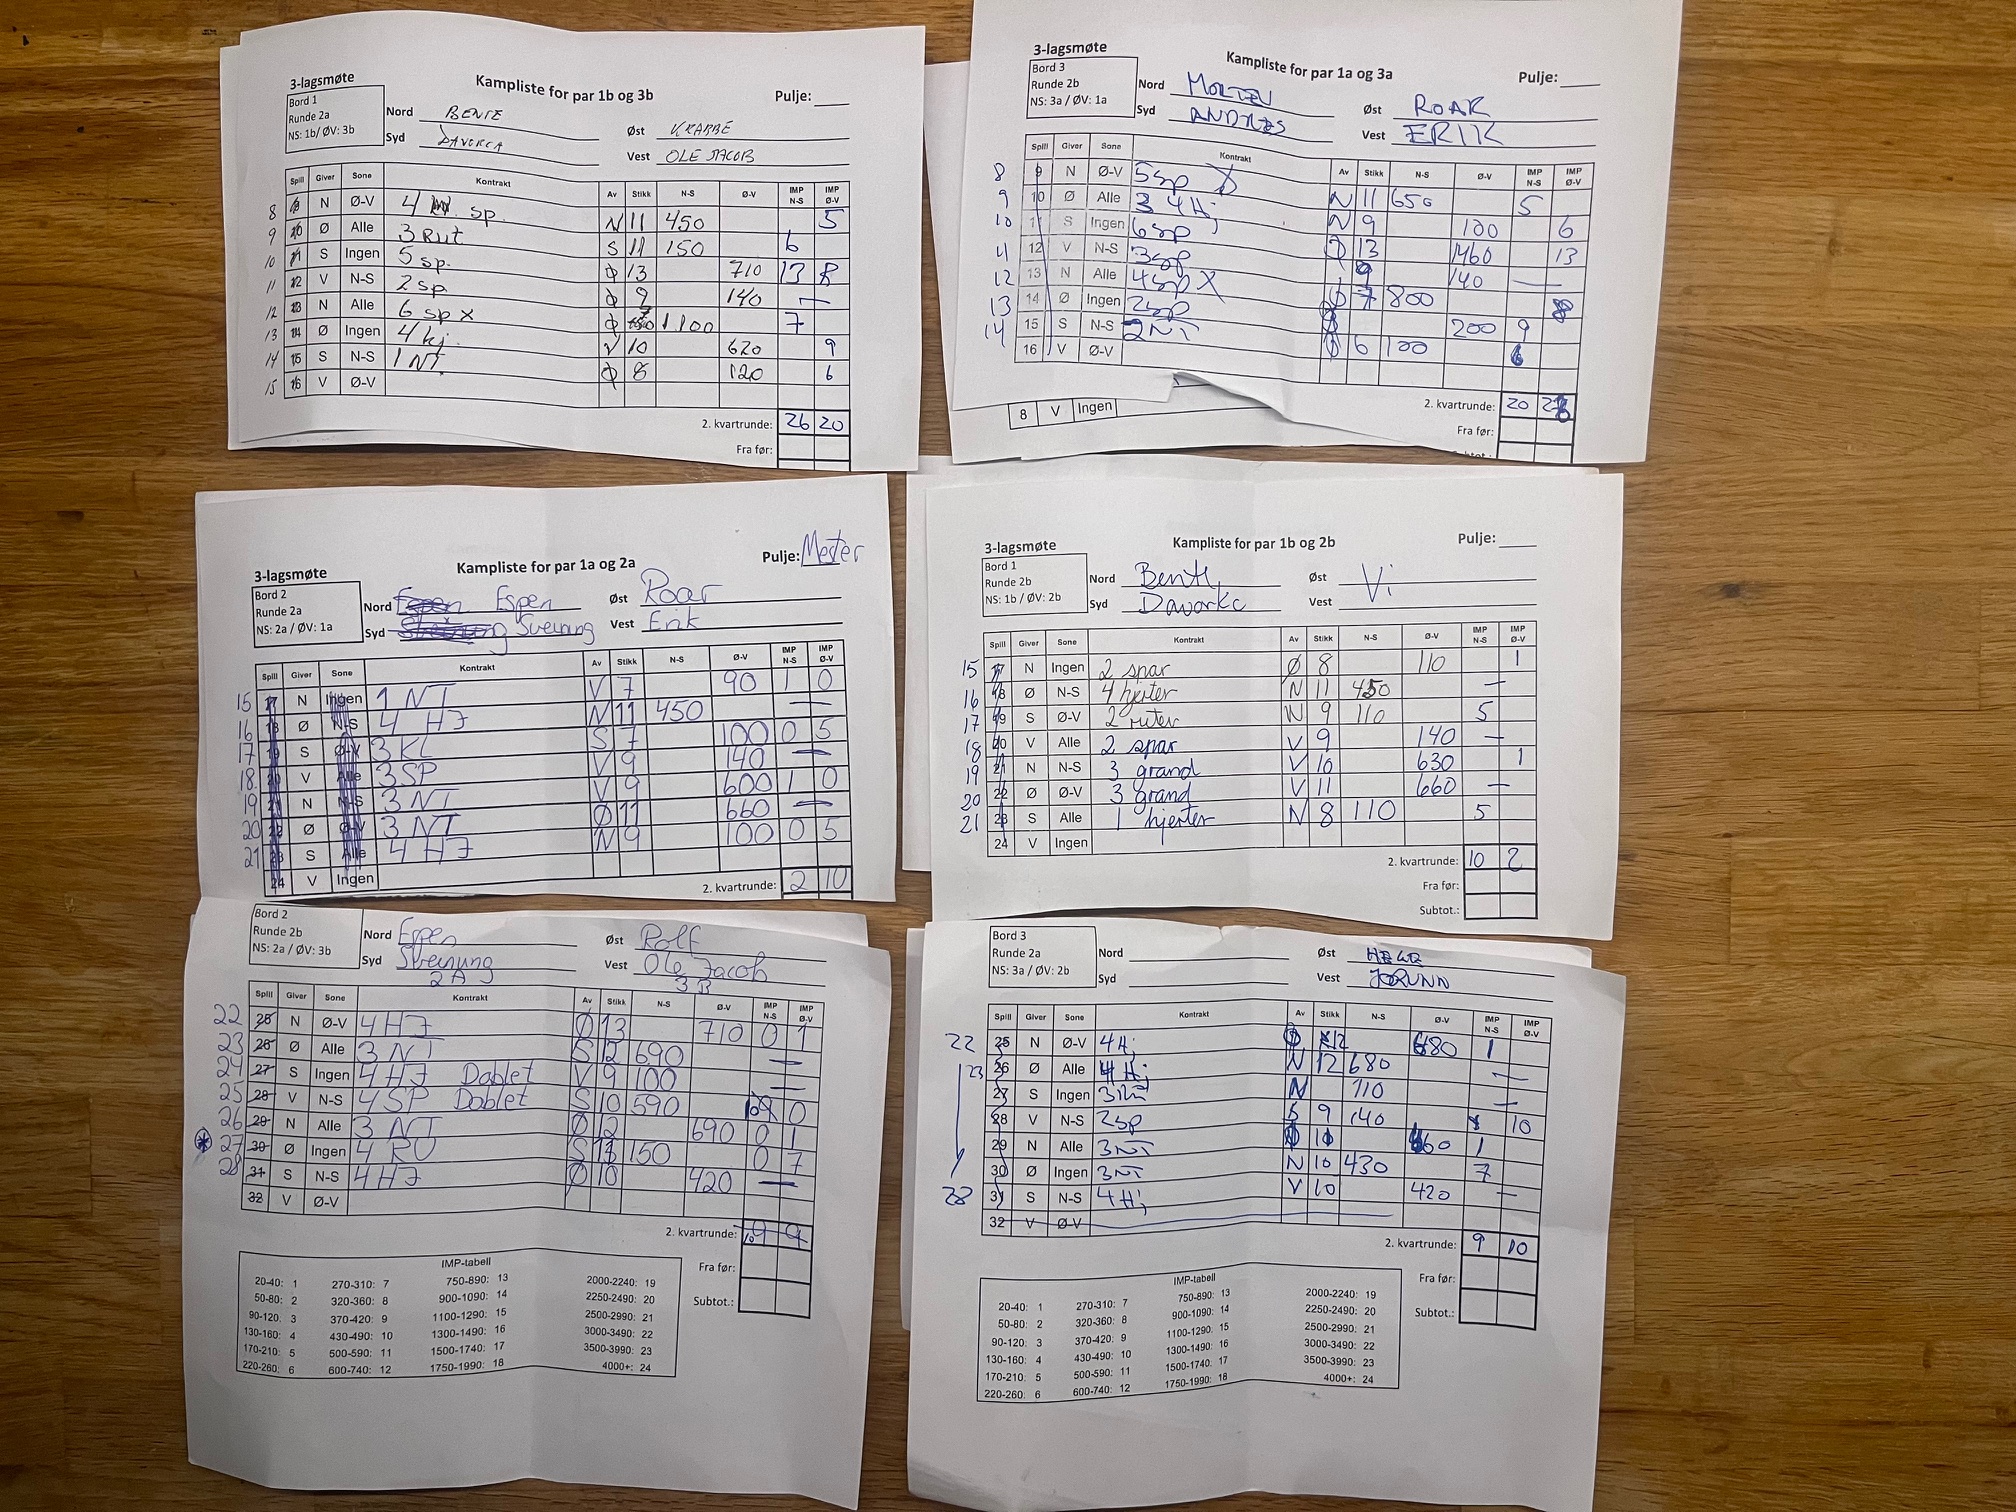 3-lagsmøte
Kampliste for par 1b og 3b
Pulje:
Bord 1
Runde 2a
NS: 1b/ ØV: 3b
Nord BENTE
Syd DAVORKA
Øst KRABBE
Vest OLE JACOB
Spill Giver Sone Kontrakt Av Stikk N-S Ø-V IMP N-S IMP Ø-V
8 N Ø-V 4 sp. N 11 450 5
9 Ø Alle 3 Rut S 11 150 6
10 S Ingen 5 sp. Ø 13 710 13
11 V N-S 2 sp Ø 9 140 —
12 N Alle 6 sp x Ø 7 1100 7
13 Ø Ingen 4 hj. V 10 620 9
14 S N-S 1 NT. Ø 8 120 6
15 V Ø-V
2. kvartrunde: 26 20
Fra før:
3-lagsmøte
Kampliste for par 1a og 3a
Pulje:
Bord 3
Runde 2b
NS: 3a / ØV: 1a
Nord MORTEN
Syd ANDREAS
Øst ROAR
Vest ERIK
Spill Giver Sone Kontrakt Av Stikk N-S Ø-V IMP N-S IMP Ø-V
8 9 N Ø-V 5 sp X N 11 650 5
9 10 Ø Alle 4 Hj N 9 100 6
10 11 S Ingen 6 sp Ø 13 1460 13
11 12 V N-S 3 sp 9 140 —
12 13 N Alle 4 sp X Ø 7 800
13 14 Ø Ingen 2 sp 200 9
14 15 S N-S 2 NT Ø 6 100 6
16 V Ø-V
8 V Ingen
2. kvartrunde: 20
Fra før:
3-lagsmøte
Kampliste for par 1a og 2a
Pulje: Mester
Bord 2
Runde 2a
NS: 2a / ØV: 1a
Nord Espen
Syd Sveinung
Øst Roar
Vest Erik
Spill Giver Sone Kontrakt Av Stikk N-S Ø-V IMP N-S IMP Ø-V
15 17 N Ingen 1 NT V 7 90 1 0
16 18 Ø N-S 4 HJ N 11 450 —
17 19 S Ø-V 3 KL S 7 100 0 5
18. 20 V Alle 3 SP V 9 140 —
19 21 N N-S 3 NT V 9 600 1 0
20 22 Ø Ø-V 3 NT Ø 11 660 —
21 23 S Alle 4 HJ N 9 100 0 5
24 V Ingen
2. kvartrunde: 2 10
3-lagsmøte
Kampliste for par 1b og 2b
Pulje:
Bord 1
Runde 2b
NS: 1b / ØV: 2b
Nord Bente
Syd Davorka
Øst Vi
Vest
Spill Giver Sone Kontrakt Av Stikk N-S Ø-V IMP N-S IMP Ø-V
15 17 N Ingen 2 spar Ø 8 110 1
16 18 Ø N-S 4 hjerter N 11 450 —
17 19 S Ø-V 2 ruter N 9 110 5
18 20 V Alle 2 spar V 9 140 —
19 21 N N-S 3 grand V 10 630 1
20 22 Ø Ø-V 3 grand V 11 660 —
21 23 S Alle 1 hjerter N 8 110 5
24 V Ingen
2. kvartrunde: 10 2
Fra før:
Subtot.:
Bord 2
Runde 2b
NS: 2a / ØV: 3b
Nord Espen
Syd Sveinung
2A
Øst Rolf
Vest Ole Jacob
3B
Spill Giver Sone Kontrakt Av Stikk N-S Ø-V IMP N-S IMP Ø-V
22 25 N Ø-V 4 HJ Ø 13 710 0 1
23 26 Ø Alle 3 NT S 12 690 —
24 27 S Ingen 4 HJ Doblet V 9 100 —
25 28 V N-S 4 SP Doblet S 10 590 10 0
26 29 N Alle 3 NT Ø 12 690 0 1
27 30 Ø Ingen 4 RU S 11 150 0 7
28 31 S N-S 4 HJ Ø 10 420 —
32 V Ø-V
2. kvartrunde: 10 9
Fra før:
Subtot.:
IMP-tabell
20-40: 1 270-310: 7 750-890: 13 2000-2240: 19
50-80: 2 320-360: 8 900-1090: 14 2250-2490: 20
90-120: 3 370-420: 9 1100-1290: 15 2500-2990: 21
130-160: 4 430-490: 10 1300-1490: 16 3000-3490: 22
170-210: 5 500-590: 11 1500-1740: 17 3500-3990: 23
220-260: 6 600-740: 12 1750-1990: 18 4000+: 24
Bord 3
Runde 2a
NS: 3a / ØV: 2b
Nord
Syd
Øst HEGE
Vest JORUNN
Spill Giver Sone Kontrakt Av Stikk N-S Ø-V IMP N-S IMP Ø-V
22 25 N Ø-V 4 Hj Ø 12 680 1
23 26 Ø Alle 4 Hj N 12 680 —
27 S Ingen 3 Ru N 110 —
28 V N-S 2 sp S 9 140 10
29 N Alle 3 NT Ø 660 1
30 Ø Ingen 3 NT N 10 430 7
28 31 S N-S 4 Hj V 10 420 —
32 V Ø-V
2. kvartrunde: 9 10
Fra før:
Subtot.:
IMP-tabell
20-40: 1 270-310: 7 750-890: 13 2000-2240: 19
50-80: 2 320-360: 8 900-1090: 14 2250-2490: 20
90-120: 3 370-420: 9 1100-1290: 15 2500-2990: 21
130-160: 4 430-490: 10 1300-1490: 16 3000-3490: 22
170-210: 5 500-590: 11 1500-1740: 17 3500-3990: 23
220-260: 6 600-740: 12 1750-1990: 18 4000+: 24